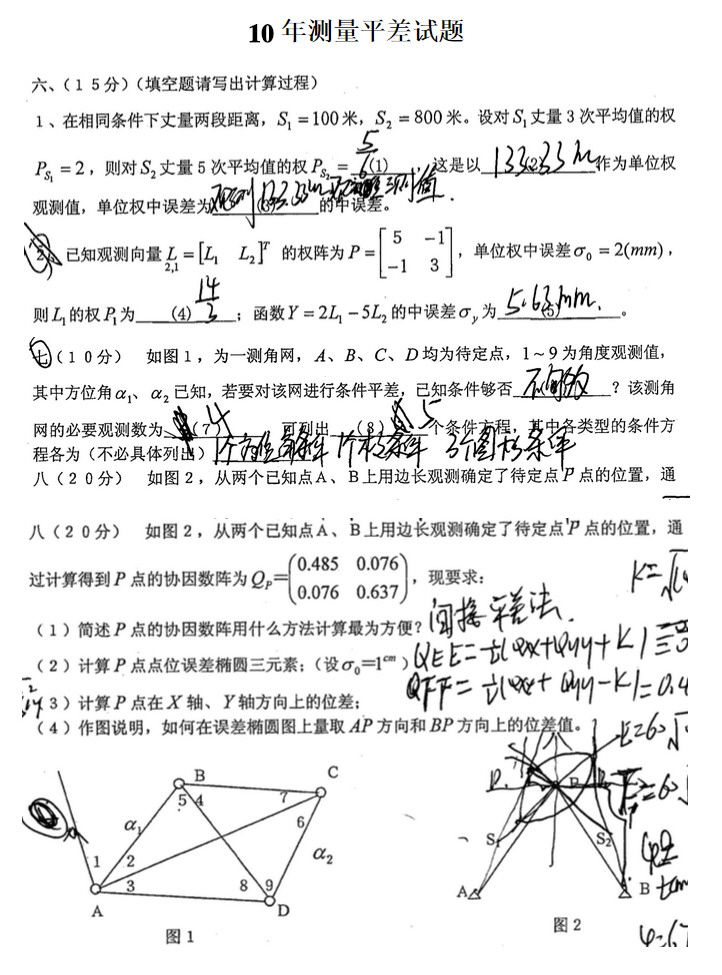 10 年测量平差试题
六、（15分）（填空题请写出计算过程）
1、在相同条件下丈量两段距离，S₁ = 100 米，S₂ = 800 米。设对 S₁ 丈量 3 次平均值的权
P_{S₁} = 2，则对 S₂ 丈量 5 次平均值的权 P_{S₂} = 5/6 (1) ，这是以 133.33m (2) 作为单位权
观测值，单位权中误差为 (3) 的中误差。
2、已知观测向量 L_{2,1} = [L₁ L₂]^T 的权阵为 P = [5 -1; -1 3]，单位权中误差 σ₀ = 2(mm)，
则 L₁ 的权 P₁ 为 (4) 14/3 ；函数 Y = 2L₁ - 5L₂ 的中误差 σ_y 为 5.63mm. (5) 。
七（10分） 如图1，为一测角网，A、B、C、D 均为待定点，1~9 为角度观测值，
其中方位角 α₁、α₂ 已知，若要对该网进行条件平差，已知条件够否 不够 ？该测角
网的必要观测数为 (7) 4 可列出 (8) 5 个条件方程，其中各类型的条件方
程各为（不必具体列出） 1个方位角条件 1个极条件 3个图形条件
八（20分） 如图2，从两个已知点A、B上用边长观测确定了待定点P点的位置，通
八（20分） 如图2，从两个已知点A、B上用边长观测确定了待定点P点的位置，通
过计算得到 P 点的协因数阵为 Q_P = (0.485 0.076; 0.076 0.637)，现要求：
K=√
（1）简述 P 点的协因数阵用什么方法计算最为方便？ 间接平差法.
（2）计算 P 点点位误差椭圆三元素；（设 σ₀=1^{cm}） QEE=½(Qxx+Qyy+K)=
3）计算 P 点在 X 轴、Y 轴方向上的位差； QFF=½(Qxx+Qyy-K)=0.4
（4）作图说明，如何在误差椭圆图上量取 AP 方向和 BP 方向上的位差值。
E=6₀√
B C
5 4 7
α₁ 6
α₂
1 2
3 8 9
A D
图1
P
S₁ S₂
A B
图2